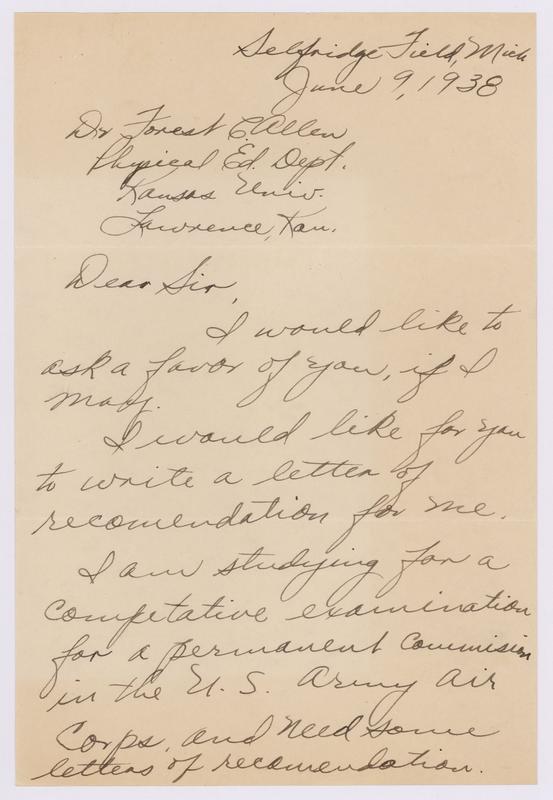 Selfridge Field, Mich
June 9, 1938
Dr Forest C. Allen
Physical Ed. Dept.
Kansas Univ.
Lawrence, Kan.
Dear Sir,
I would like to
ask a favor of you, if I
may.
I would like for you
to write a letter of
recomendation for me.
I am studying for a
competative examination
for a permanent commision
in the U. S. Army Air
Corps, and need some
letters of recomendation.